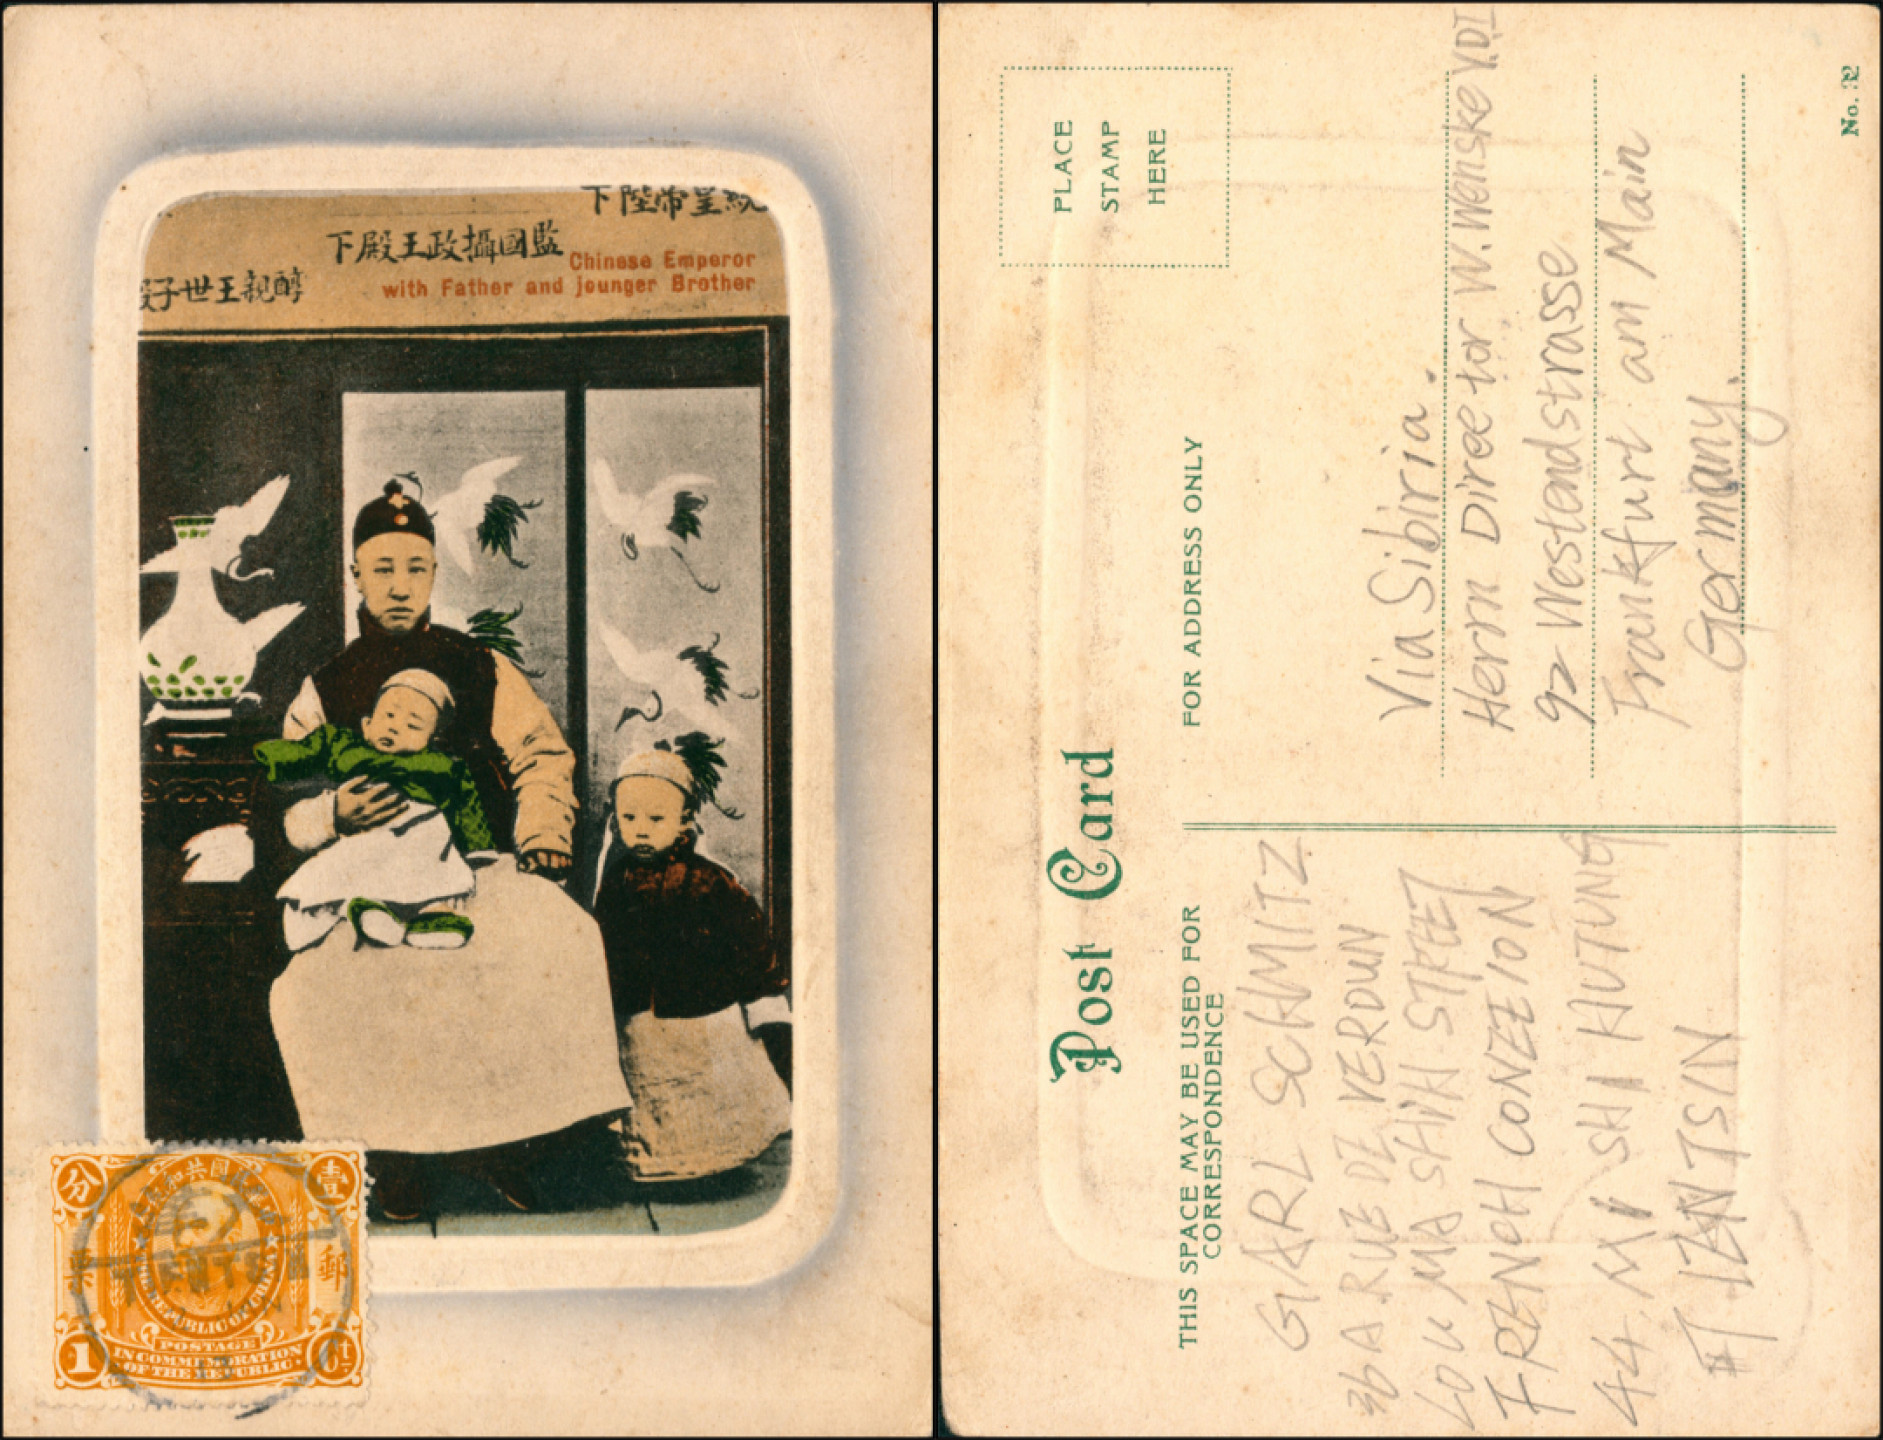 統皇帝陛下
監國攝政王殿下
醇親王世子殿
Chinese Emperor
with Father and jounger Brother
分 壹
共和
郵
票
REPUBLIC OF CHINA
POSTAGE
IN COMMEMORATION
OF THE REPUBLIC
1 Ct
TIENTSIN
PLACE
STAMP
HERE
Post Card
THIS SPACE MAY BE USED FOR
CORRESPONDENCE
FOR ADDRESS ONLY
CARL SCHMITZ
36 A RUE DE VERDUN
LOU MA SHIH STREET
FRENCH CONZEION
44, MI SHI HUTUNG
TIENTSIN
Via Sibiria.
Herrn Director W. Wenske V.D.I
92 Westendstrasse
Frankfurt am Main
Germany.
No. 32